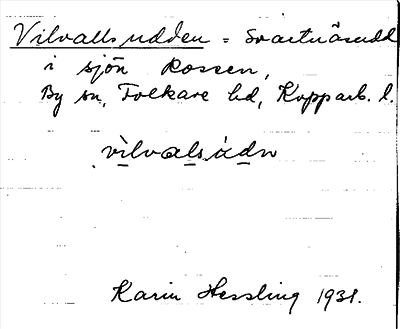 Vilvallsudden = Svartnäsudd
i sjön Rossen,
By sn, Folkare hd, Kopparb. l.
vilvalsùdn
Karin Hessling 1931.